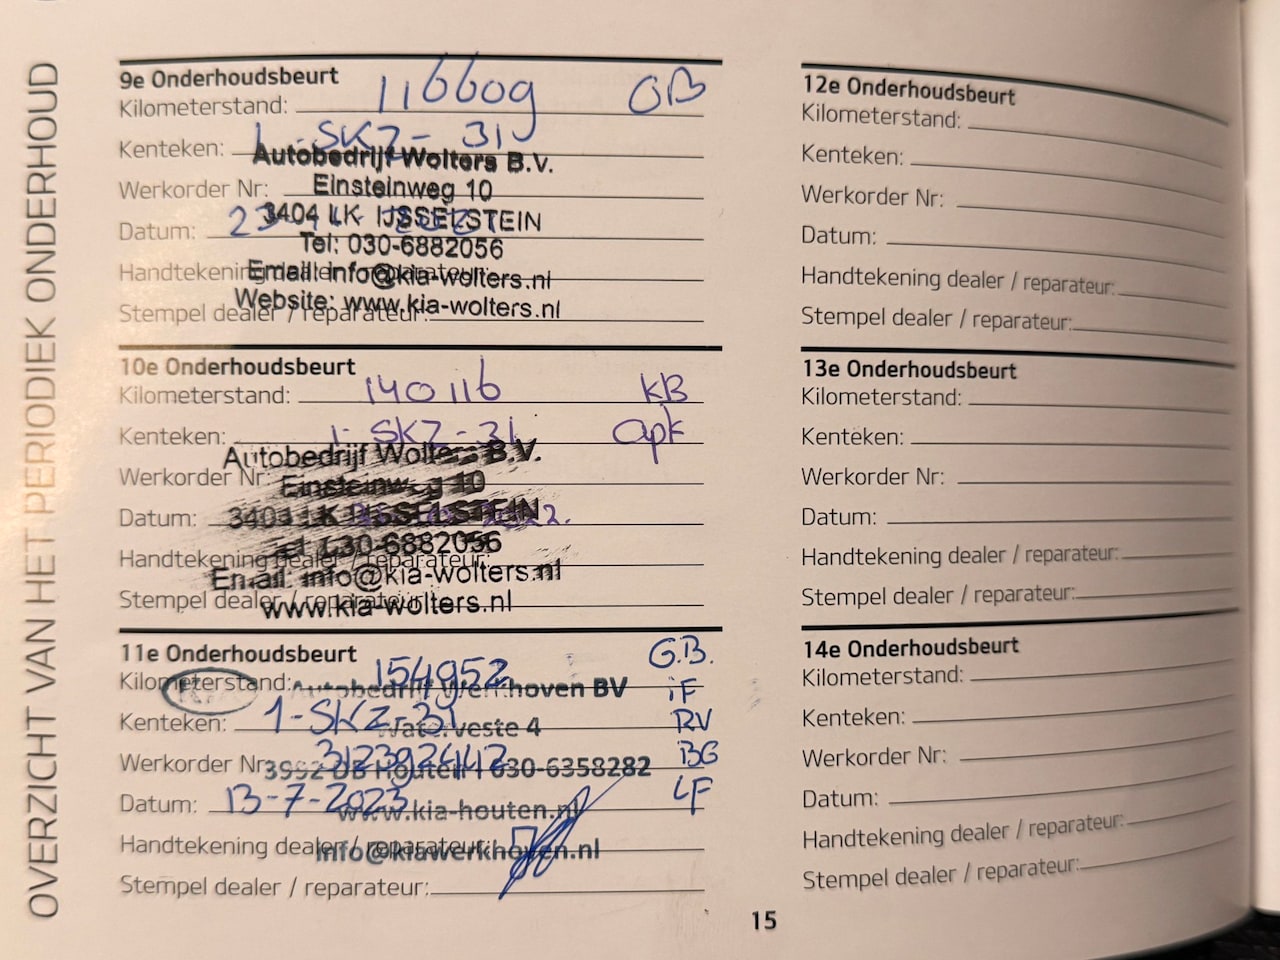 OVERZICHT VAN HET PERIODIEK ONDERHOUD
9e Onderhoudsbeurt
Kilometerstand: 116609 GB
Kenteken: 1-SKZ-31
Autobedrijf Wolters B.V.
Werkorder Nr: Einsteinweg 10
Datum: 3404 LK IJSSELSTEIN
Tel: 030-6882056
Handtekening dealer / reparateur:
Email: info@kia-wolters.nl
Stempel dealer / reparateur:
Website: www.kia-wolters.nl
10e Onderhoudsbeurt
Kilometerstand: 140116 KB
Kenteken: 1-SKZ-31 apk
Autobedrijf Wolters B.V.
Werkorder Nr:
Einsteinweg 10
Datum: 3404 LK IJSSELSTEIN
030-6882056
Handtekening dealer / reparateur:
Email: info@kia-wolters.nl
Stempel dealer / reparateur:
www.kia-wolters.nl
11e Onderhoudsbeurt G.B.
Kilometerstand: 154952 iF
Autobedrijf Werkhoven BV
Kenteken: 1-SKZ-31 RV
Waterveste 4
Werkorder Nr: 3123924142 BG
3992 DB Houten | 030-6358282
Datum: 13-7-2023 LF
www.kia-houten.nl
Handtekening dealer / reparateur:
info@kiawerkhoven.nl
Stempel dealer / reparateur:
12e Onderhoudsbeurt
Kilometerstand:
Kenteken:
Werkorder Nr:
Datum:
Handtekening dealer / reparateur:
Stempel dealer / reparateur:
13e Onderhoudsbeurt
Kilometerstand:
Kenteken:
Werkorder Nr:
Datum:
Handtekening dealer / reparateur:
Stempel dealer / reparateur:
14e Onderhoudsbeurt
Kilometerstand:
Kenteken:
Werkorder Nr:
Datum:
Handtekening dealer / reparateur:
Stempel dealer / reparateur:
15